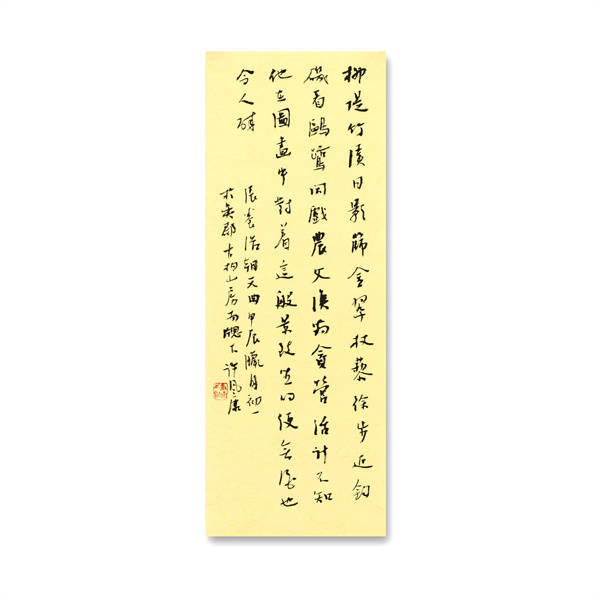 柳堤竹溪日影篩金翠杖藜徐步近釣
磯看鷗鷺閑戲農父漁翁貪營活計不知
他在圖畫中對着這般景致坐的便無酒也
令人醉
張養浩朝天曲甲辰臘月初一
於吳郡古山房南窗下許